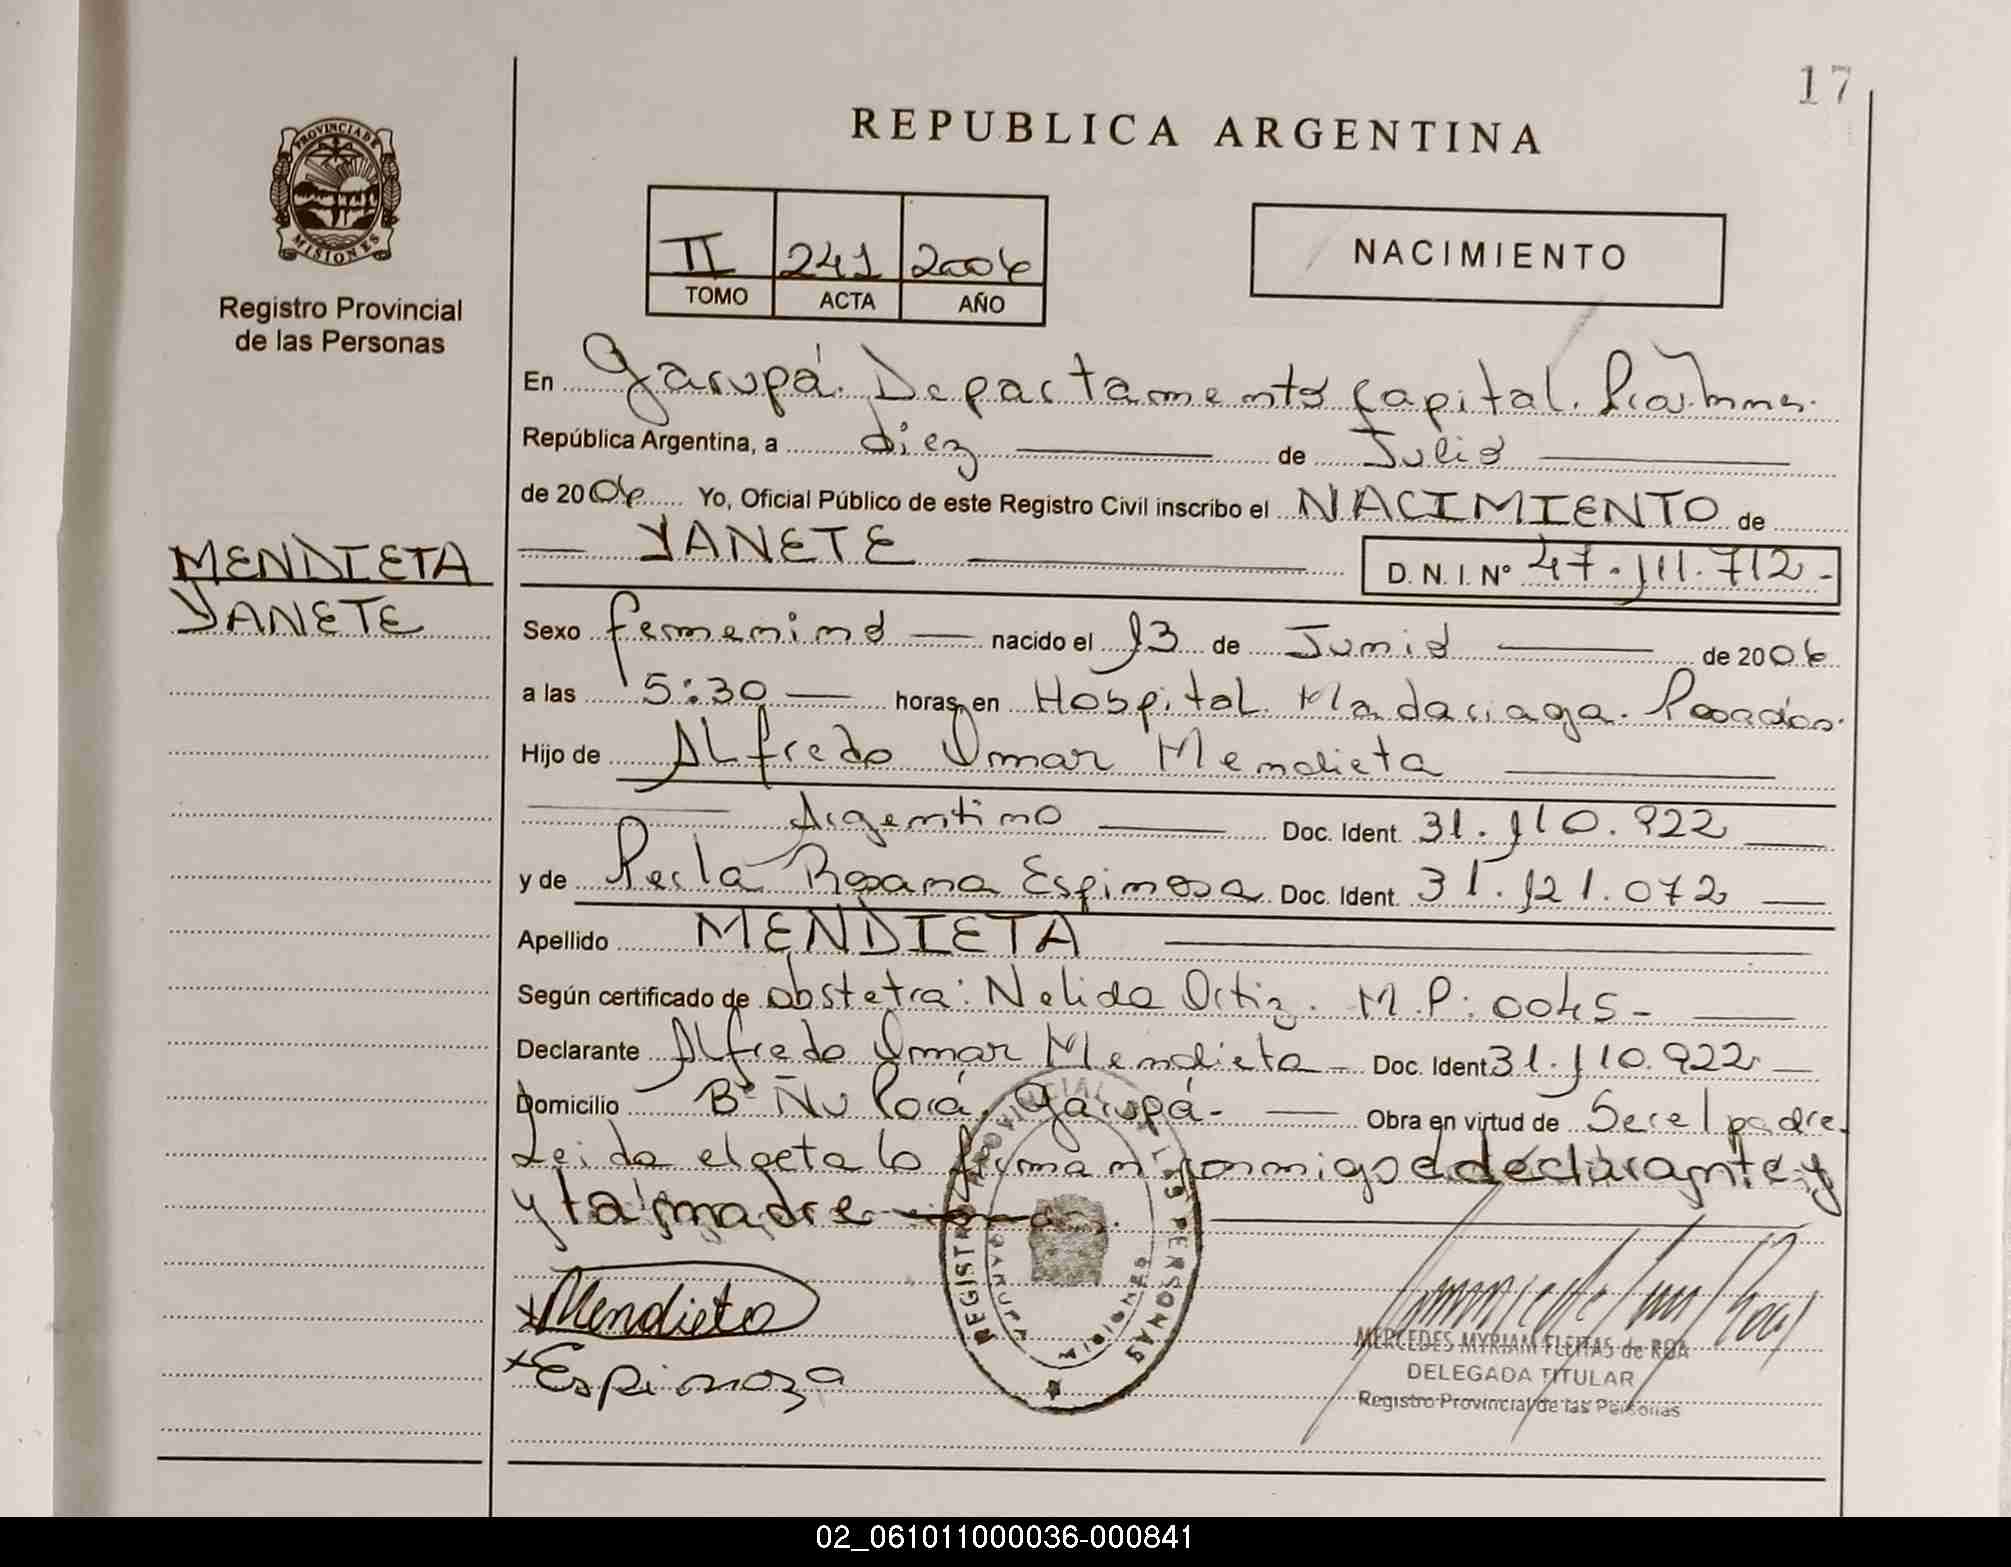 17
REPUBLICA ARGENTINA
PROVINCIA DE
MISIONES
Registro Provincial
de las Personas
II 241 2006
TOMO ACTA AÑO
NACIMIENTO
En Garupá. Departamento Capital.
República Argentina, a diez de Julio
de 2006 Yo, Oficial Público de este Registro Civil inscribo el NACIMIENTO de
YANETE D. N. I. Nº 47.111.712.-
MENDIETA
YANETE
Sexo femenino nacido el 13 de Junio de 2006
a las 5:30 horas, en Hospital Madariaga. Posadas.
Hijo de Alfredo Omar Mendieta
Argentino Doc. Ident. 31.110.922
y de Perla Rosana Espinosa Doc. Ident. 31.121.072
Apellido MENDIETA
Según certificado de obstetra: Nelida Ortiz. M.P: 0045-
Declarante Alfredo Omar Mendieta Doc. Ident 31.110.922
Domicilio Bº Ñu Porá. Garupá- Obra en virtud de Ser el padre.
Leida el acta la firman conmigo el declarante y
y la madre
Mendieta
Espinoza
REGISTRO PROVINCIAL DE LAS PERSONAS
MISIONES
MERCEDES MYRIAM FLEITAS de ROA
DELEGADA TITULAR
Registro Provincial de las Personas
02_061011000036-000841